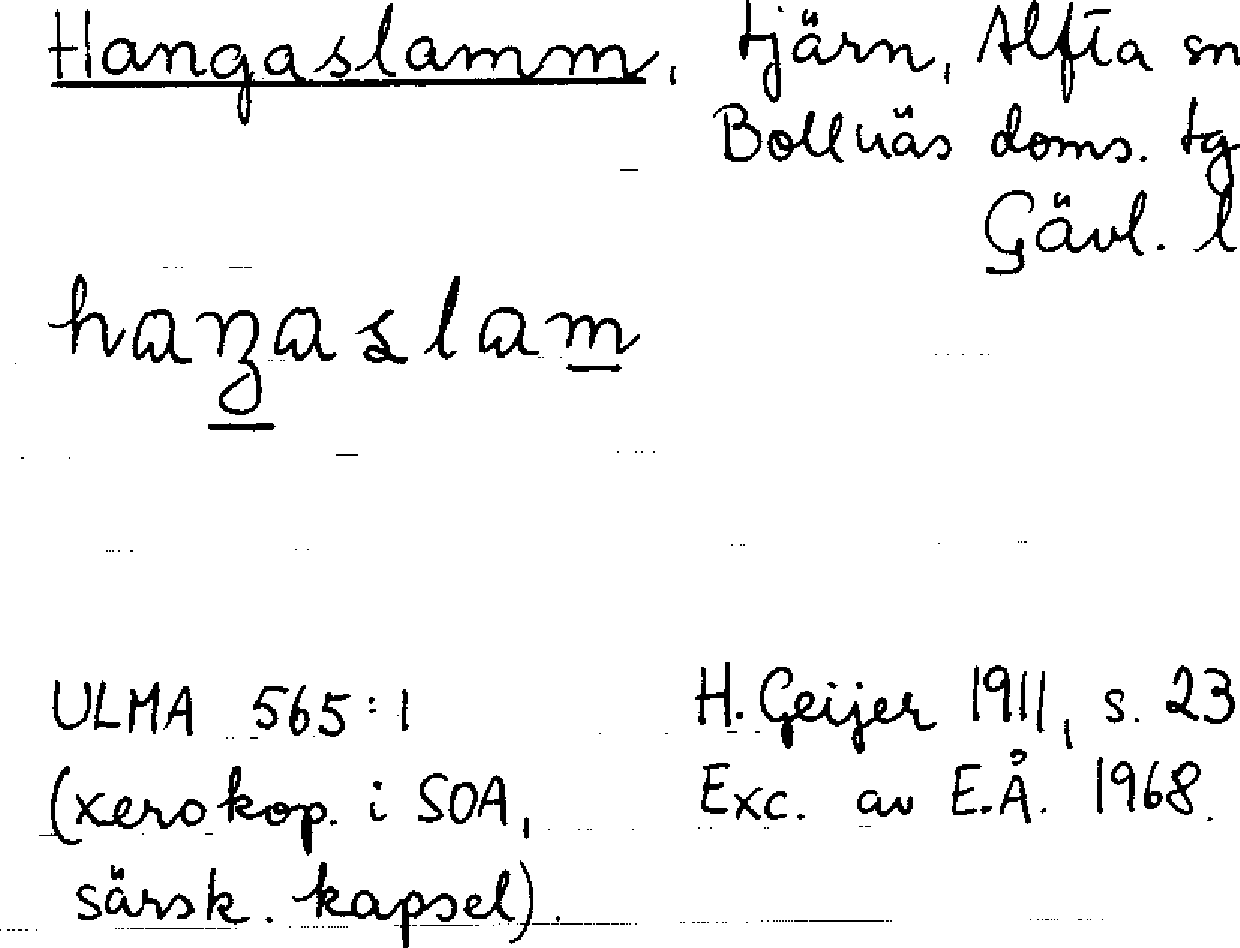 Hangaslamm, tjärn, Alfta sn
Bollnäs doms. tg
Gävl. l
ULMA 565:1 H. Geijer 1911, s. 23
(xerokop. i SOA, Exc. av E.Å. 1968.
särsk. kapsel).